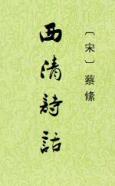 〔宋〕蔡絛
西清詩話